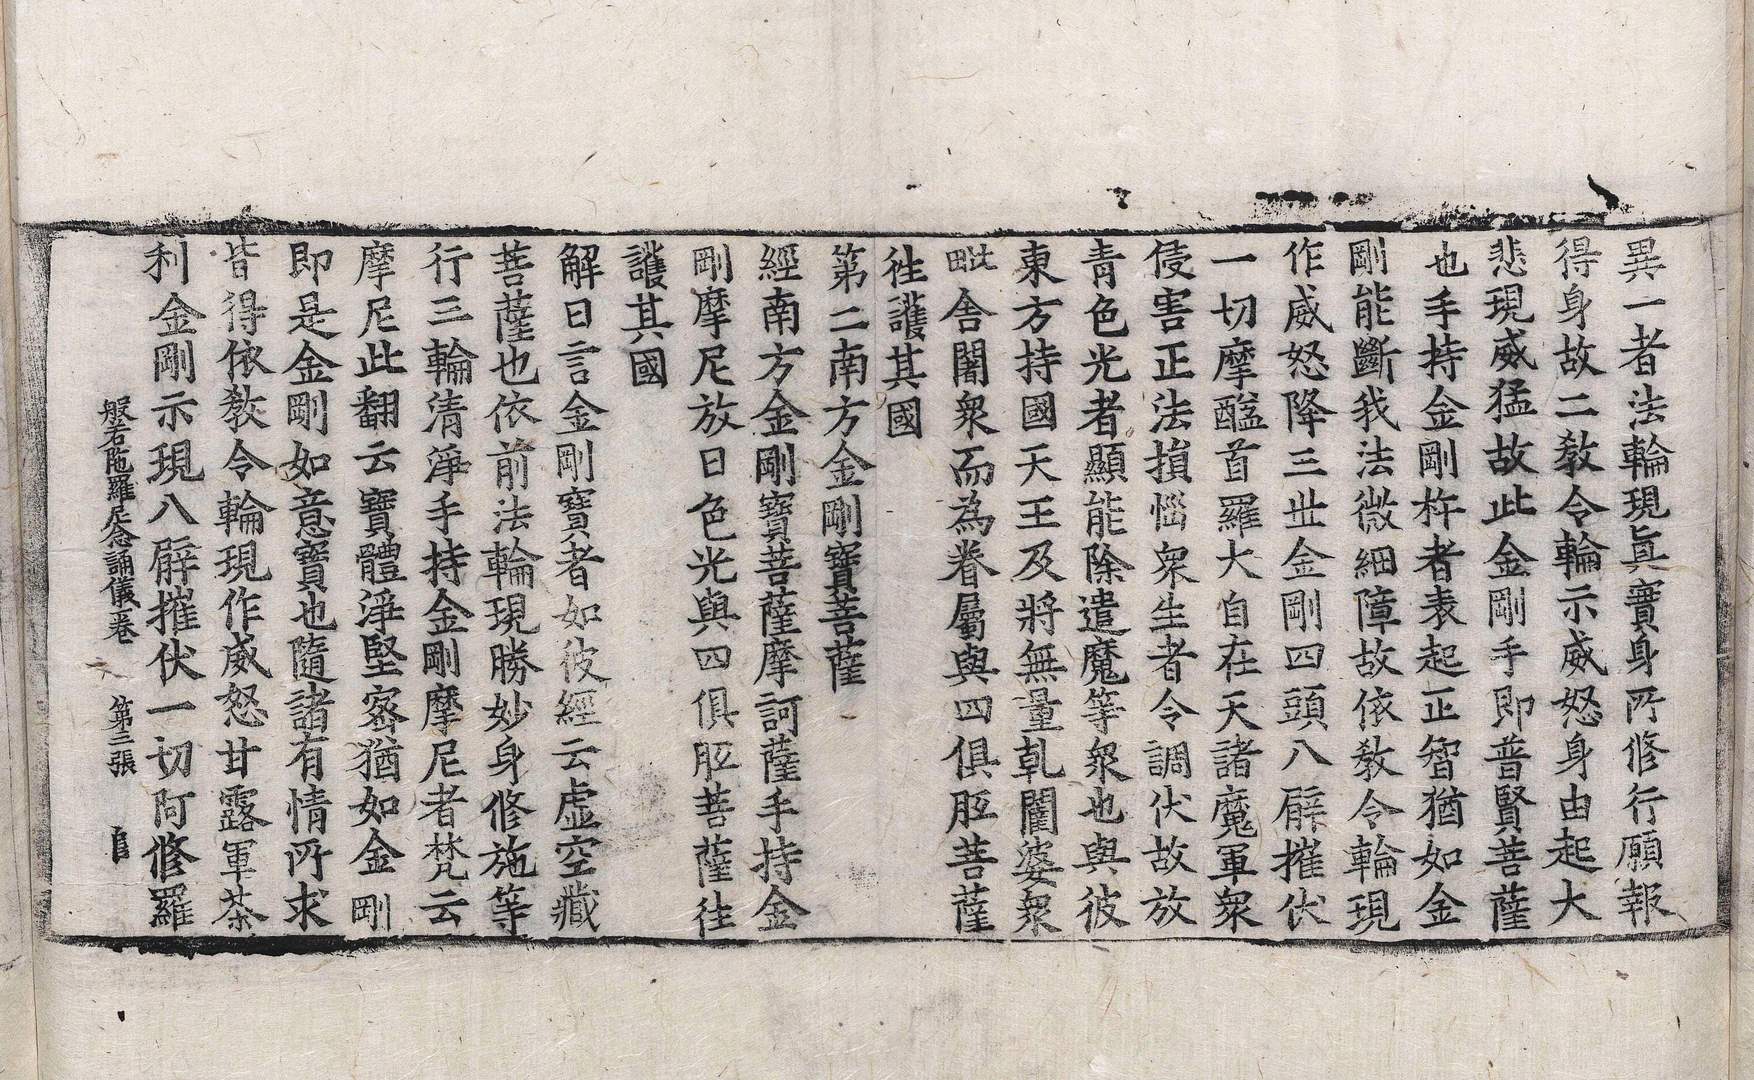 異一者法輪現眞實身所修行願報
得身故二敎令輪示威怒身由起大
悲現威猛故此金剛手即普賢菩薩
也手持金剛杵者表起正智猶如金
剛能斷我法微細障故依敎令輪現
作威怒降三丗金剛四頭八臂摧伏
一切摩醯首羅大自在天諸魔軍衆
侵害正法損惱衆生者令調伏故放
青色光者顯能除遣魔等衆也與彼
東方持國天王及將無量乹闥婆衆
毗舍闍衆而為眷屬與四俱胝菩薩
徃護其國
第二南方金剛寶菩薩
經南方金剛寶菩薩摩訶薩手持金
剛摩尼放日色光與四俱胝菩薩徃
護其國
解曰言金剛寶者如彼經云虛空藏
菩薩也依前法輪現勝妙身修施等
行三輪清淨手持金剛摩尼者梵云
摩尼此翻云寶體淨堅密猶如金剛
即是金剛如意寶也隨諸有情所求
皆得依敎令輪現作威怒甘露軍荼
利金剛示現八臂摧伏一切阿修羅
般若陁羅尼念誦儀一卷 第三張